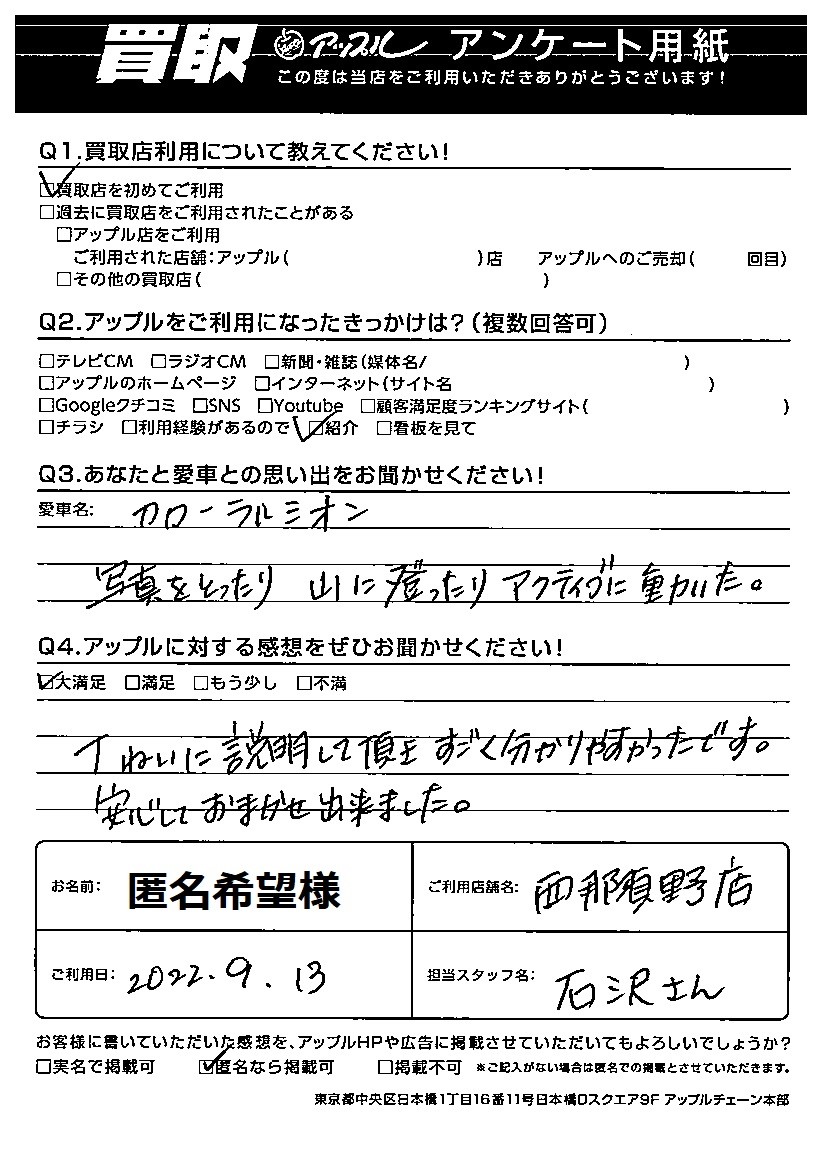 買取 アップル アンケート用紙
この度は当店をご利用いただきありがとうございます!
Q1.買取店利用について教えてください!
☑買取店を初めてご利用
□過去に買取店をご利用されたことがある
□アップル店をご利用
ご利用された店舗:アップル( )店 アップルへのご売却( 回目)
□その他の買取店( )
Q2.アップルをご利用になったきっかけは?(複数回答可)
□テレビCM □ラジオCM □新聞・雑誌(媒体名/ )
□アップルのホームページ □インターネット(サイト名 )
□Googleクチコミ □SNS □Youtube □顧客満足度ランキングサイト( )
□チラシ □利用経験があるので ☑紹介 □看板を見て
Q3.あなたと愛車との思い出をお聞かせください!
愛車名: カローラルミオン
写真をとったり 山に登ったり アクティブに動いた。
Q4.アップルに対する感想をぜひお聞かせください!
☑大満足 □満足 □もう少し □不満
丁ねいに説明して頂き すごく分かりやすかったです。
安心しておまかせ出来ました。
お名前: 匿名希望様 ご利用店舗名: 西那須野店
ご利用日: 2022.9.13 担当スタッフ名: 石沢さん
お客様に書いていただいた感想を、アップルHPや広告に掲載させていただいてもよろしいでしょうか?
□実名で掲載可 ☑匿名なら掲載可 □掲載不可 ※ご記入がない場合は匿名での掲載とさせていただきます。
東京都中央区日本橋1丁目16番11号日本橋Dスクエア9F アップルチェーン本部